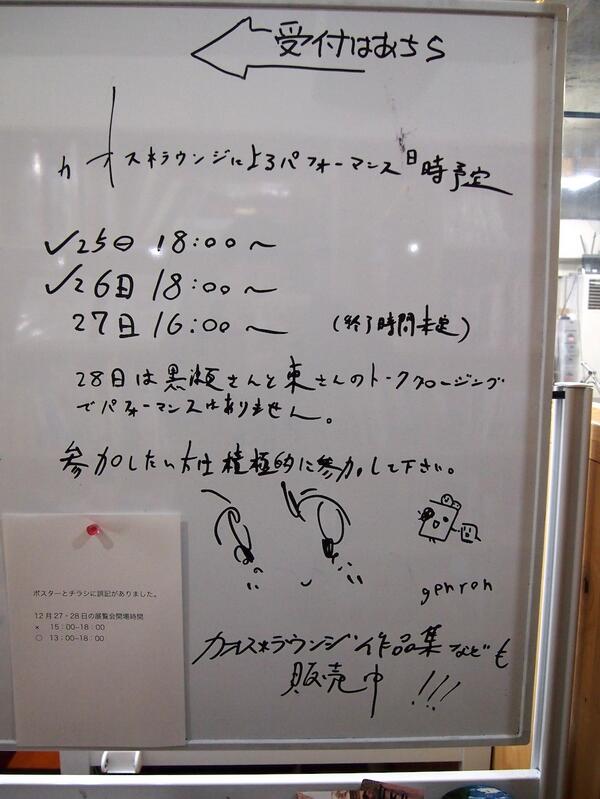 受付はあちら
カオス*ラウンジによるパフォーマンス日時予定
✓25日 18:00〜
✓26日 18:00〜
27日 16:00〜 (終了時間未定)
28日は黒瀬さんと東さんのトーククロージング
でパフォーマンスはありません。
参加したい方は積極的に参加して下さい。
genron
ポスターとチラシに誤記がありました。
12月27・28日の展覧会開場時間
× 15:00–18:00
○ 13:00–18:00
カオス*ラウンジ作品集なども
販売中!!!